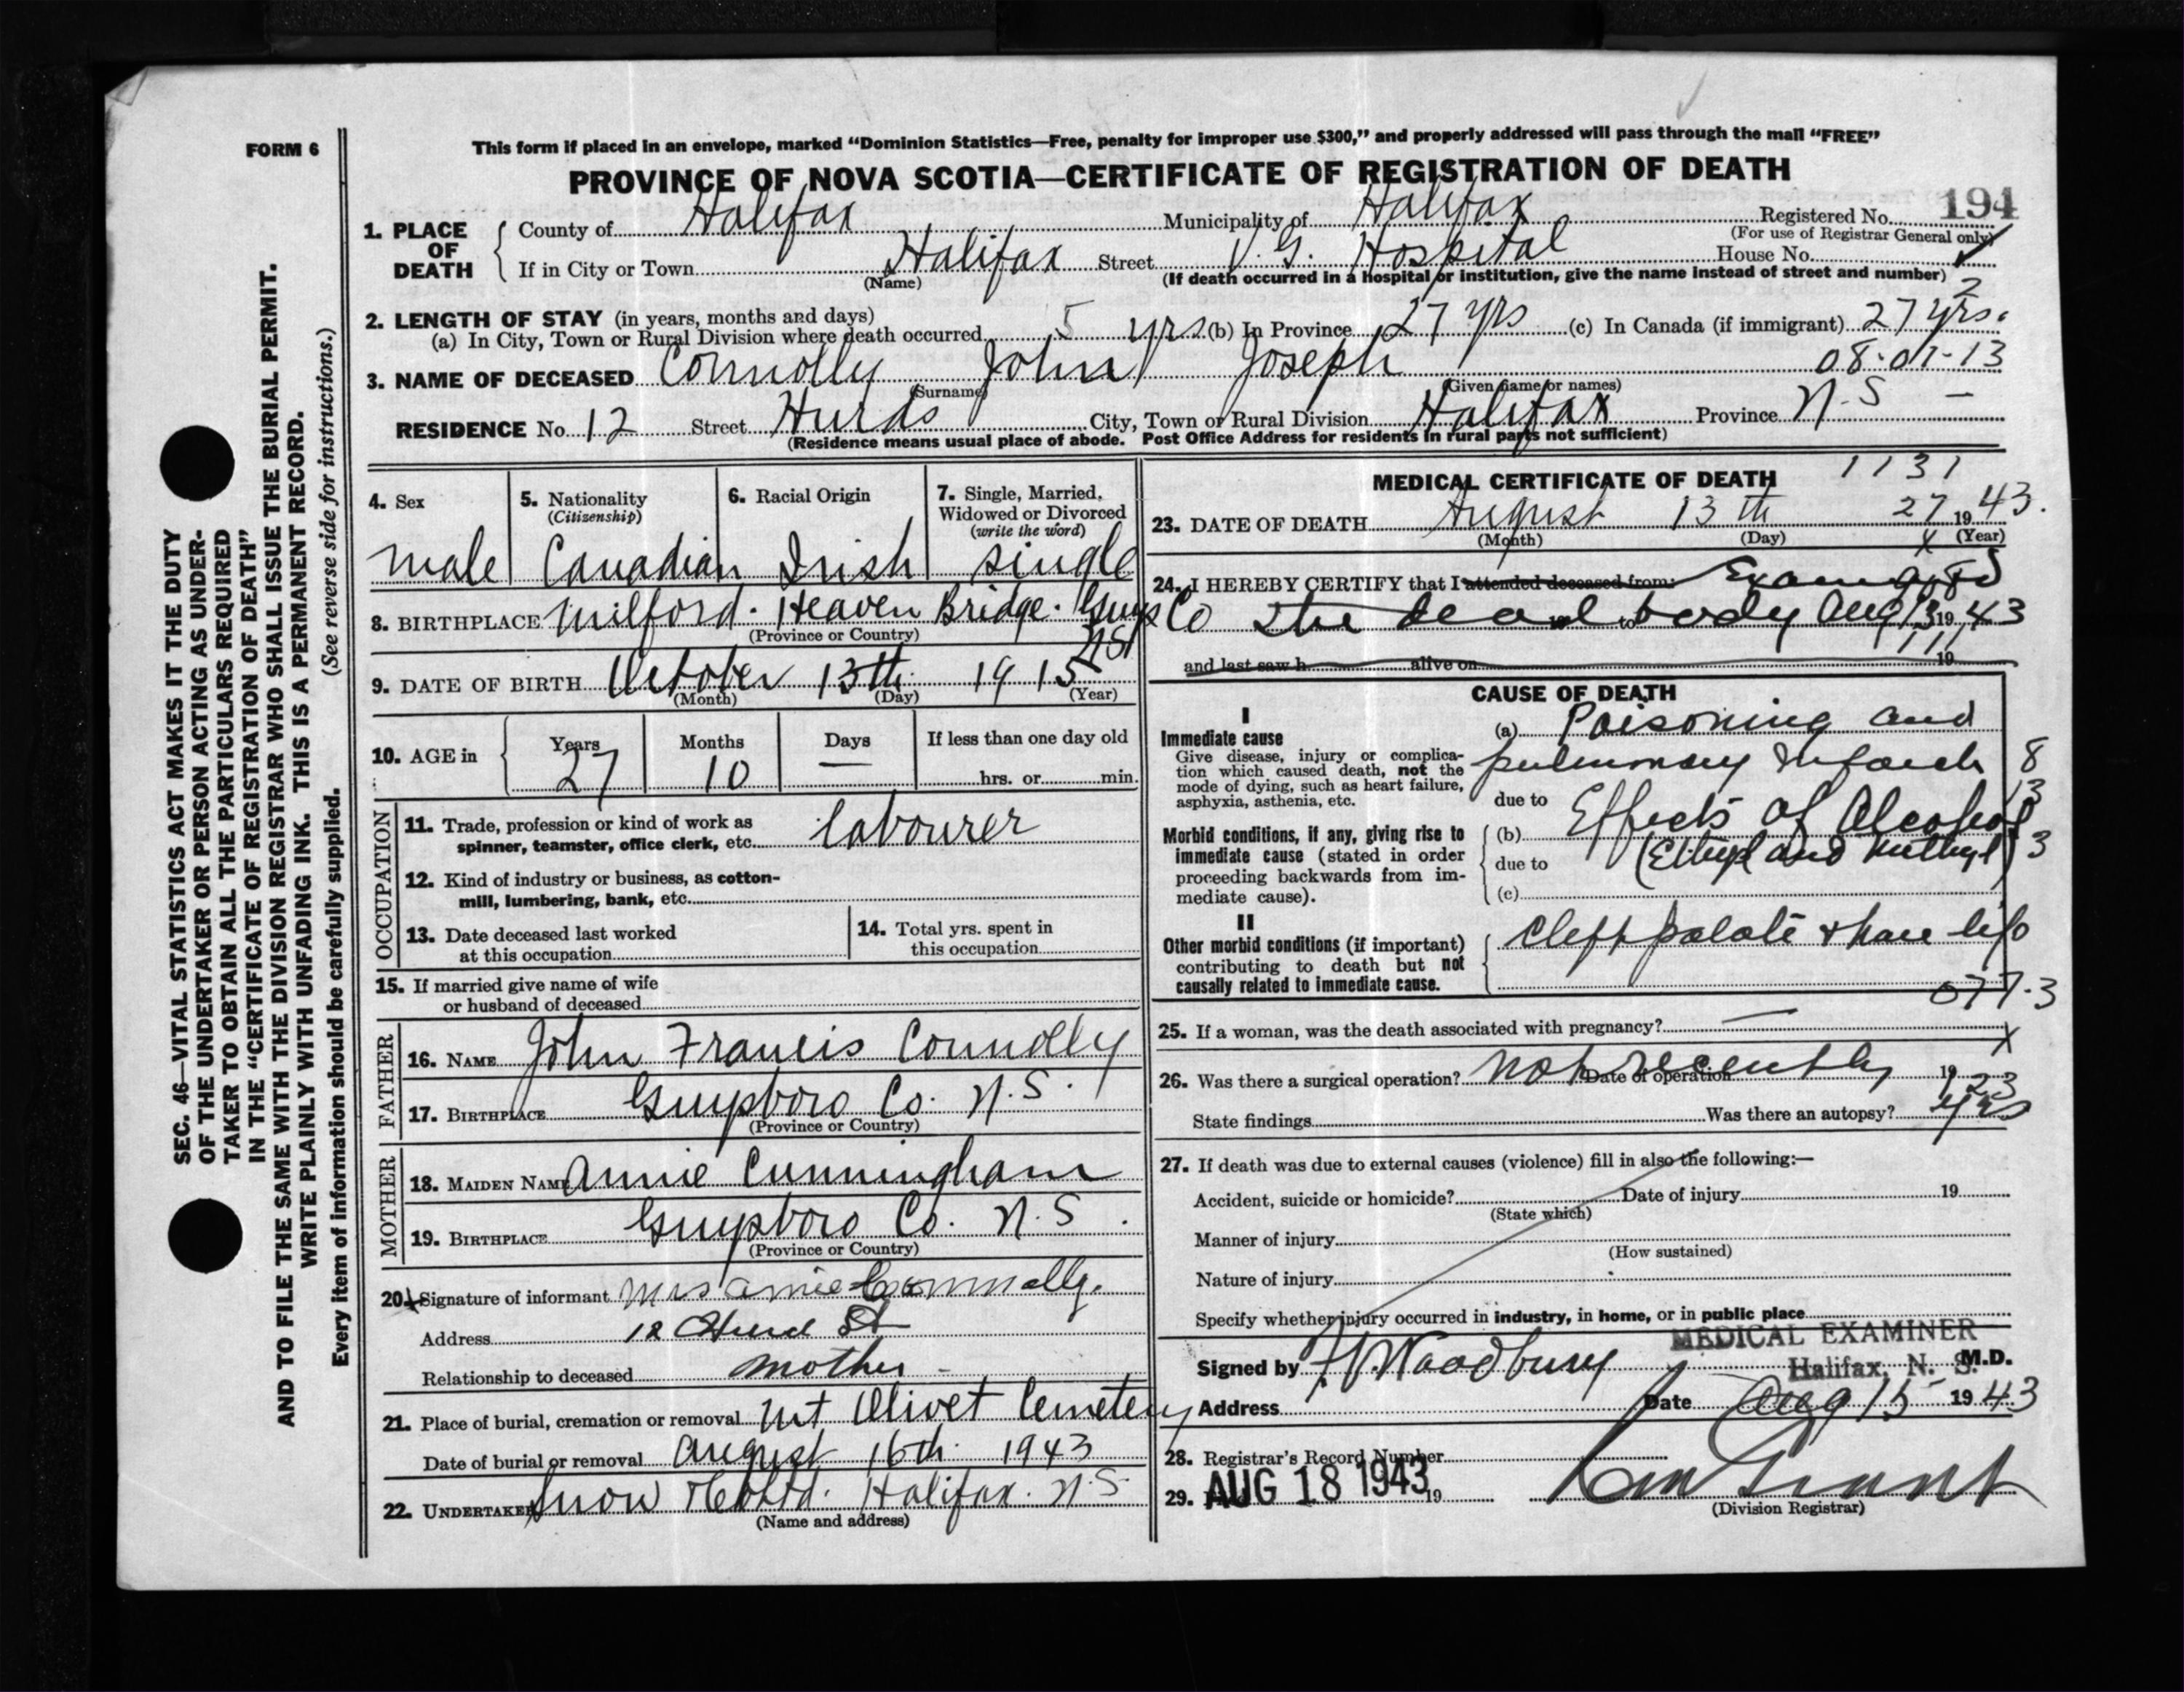 FORM 6
This form if placed in an envelope, marked “Dominion Statistics—Free, penalty for improper use $300,” and properly addressed will pass through the mail “FREE”
PROVINCE OF NOVA SCOTIA—CERTIFICATE OF REGISTRATION OF DEATH
SEC. 46—VITAL STATISTICS ACT MAKES IT THE DUTY
OF THE UNDERTAKER OR PERSON ACTING AS UNDER-
TAKER TO OBTAIN ALL THE PARTICULARS REQUIRED
IN THE “CERTIFICATE OF REGISTRATION OF DEATH”
AND TO FILE THE SAME WITH THE DIVISION REGISTRAR WHO SHALL ISSUE THE BURIAL PERMIT.
WRITE PLAINLY WITH UNFADING INK. THIS IS A PERMANENT RECORD.
Every item of information should be carefully supplied. (See reverse side for instructions.)
1. PLACE OF DEATH County of Halifax Municipality of Halifax Registered No. 194
(For use of Registrar General only)
If in City or Town Halifax Street V. G. Hospital House No.
(Name) (If death occurred in a hospital or institution, give the name instead of street and number)
2
2. LENGTH OF STAY (in years, months and days)
(a) In City, Town or Rural Division where death occurred 5 yrs (b) In Province 27 yrs (c) In Canada (if immigrant) 27 yrs.
3. NAME OF DECEASED Connolly John Joseph 08-01-13
(Surname) (Given name or names)
RESIDENCE No. 12 Street Hurds City, Town or Rural Division Halifax Province N.S —
(Residence means usual place of abode. Post Office Address for residents in rural parts not sufficient)
4. Sex 5. Nationality (Citizenship) 6. Racial Origin 7. Single, Married, Widowed or Divorced (write the word)
male Canadian Irish single
8. BIRTHPLACE Milford. Heaven Bridge. Guys Co
N.S
(Province or Country)
9. DATE OF BIRTH October 13th 1915
(Month) (Day) (Year)
10. AGE in Years Months Days If less than one day old
27 10 — hrs. or min.
OCCUPATION
11. Trade, profession or kind of work as
spinner, teamster, office clerk, etc. labourer
12. Kind of industry or business, as cotton-
mill, lumbering, bank, etc.
13. Date deceased last worked
at this occupation
14. Total yrs. spent in
this occupation
15. If married give name of wife
or husband of deceased
FATHER
16. NAME John Francis Connolly
17. BIRTHPLACE Guysboro Co. N.S.
(Province or Country)
MOTHER
18. MAIDEN NAME Annie Cunningham
19. BIRTHPLACE Guysboro Co. N.S.
(Province or Country)
20. Signature of informant Mrs Annie Connolly.
Address 12 Hurd St
Relationship to deceased Mother -
21. Place of burial, cremation or removal Mt Olivet Cemetery
Date of burial or removal August 16th. 1943
22. UNDERTAKER Snow & Co Ltd. Halifax. N.S.
(Name and address)
MEDICAL CERTIFICATE OF DEATH 1131
23. DATE OF DEATH August 13th 27 1943.
(Month) (Day) (Year)
24. I HEREBY CERTIFY that I attended deceased from: Examined
the dead body Aug 13 1943
and last saw h alive on 19
CAUSE OF DEATH
I
Immediate cause
Give disease, injury or complica-
tion which caused death, not the
mode of dying, such as heart failure,
asphyxia, asthenia, etc.
(a) Poisoning and
pulmonary Infarct 8
13
due to
Morbid conditions, if any, giving rise to
immediate cause (stated in order
proceeding backwards from im-
mediate cause).
(b) Effects of Alcohol
due to (Ethyl and Methyl) 3
(c)
II
Other morbid conditions (if important)
contributing to death but not
causally related to immediate cause.
Cleft palate & hare lip
077.3
25. If a woman, was the death associated with pregnancy? — X
26. Was there a surgical operation? Not recently Date of operation 19
123
State findings Was there an autopsy? yes
27. If death was due to external causes (violence) fill in also the following:—
Accident, suicide or homicide? Date of injury 19
(State which)
Manner of injury
(How sustained)
Nature of injury
Specify whether injury occurred in industry, in home, or in public place
MEDICAL EXAMINER
Halifax, N. S.
Signed by Woodbury M.D.
Address Date Aug 15 1943
28. Registrar’s Record Number
29. AUG 18 1943 19
(Division Registrar)